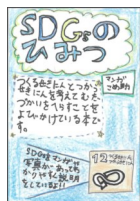 SDGsの
ひみつ
マンガ
こめ助
つくる責にんとつかう
責にんを考えてむだ
づかいをへらすことを
よびかけている本で
す。
SDGsをマンガや
写真があってわ
かりやすく説明
をしているよ!!
12 つくる責任
つかう責任